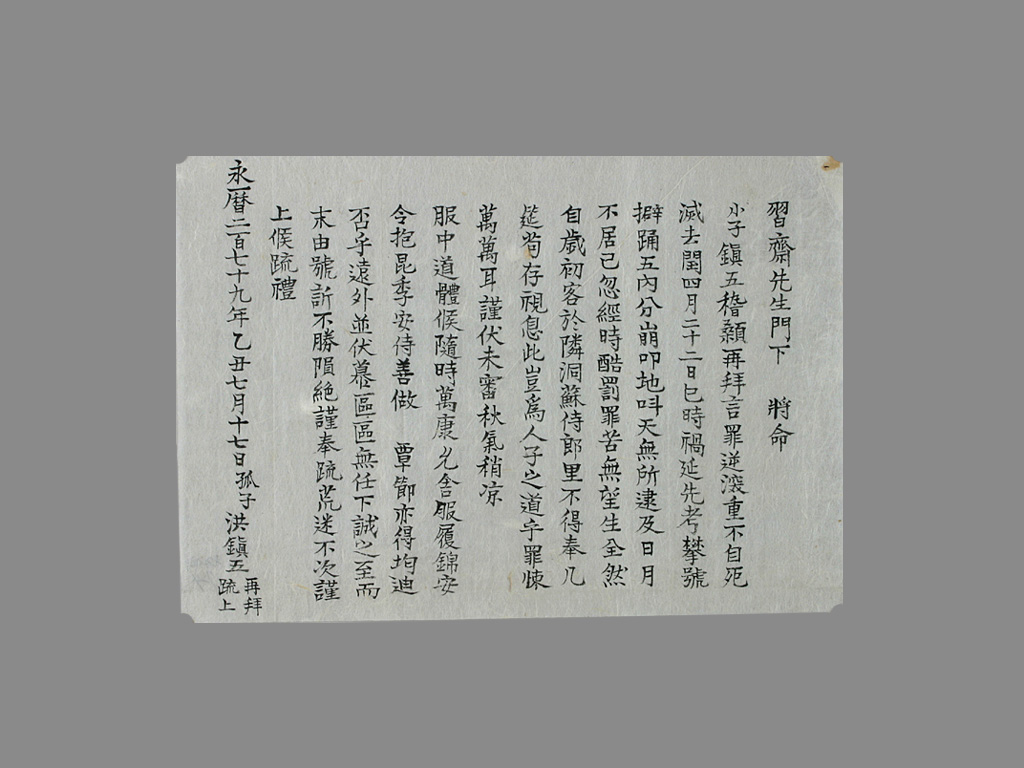 習齋先生門下　將命
小子鎭五稽顙再拜言罪逆深重不自死
滅去閏四月二十二日巳時禍延先考攀號
擗踊五內分崩叩地叫天無所逮及日月
不居已忽經時酷罰罪苦無望生全然
自歲初客於隣洞蘇侍郎里不得奉几
筵苟存視息此豈爲人子之道乎罪悚
萬萬耳謹伏未審秋氣稍凉
服中道體候隨時萬康允舍服履錦安
令抱昆季安侍善做　覃節亦得均迪
否乎遠外並伏慕區區無任下誠之至而
末由號訴不勝隕絶謹奉疏荒迷不次謹
上候疏禮
永曆二百七十九年乙丑七月十七日孤子洪鎭五再拜疏上